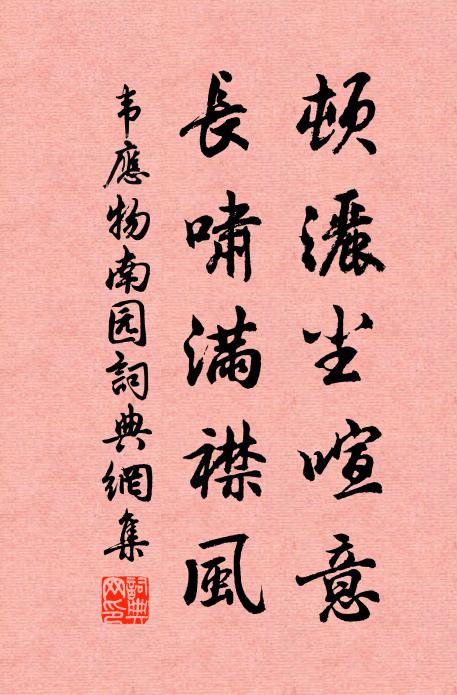 頓灑尘喧意
長嘯滿襟風
韦應物南园詞典網集
詞典网印